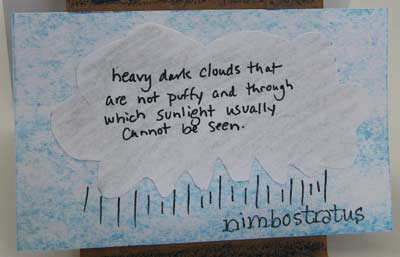 heavy dark clouds that
are not puffy and through
which sunlight usually
cannot be seen.
nimbostratus